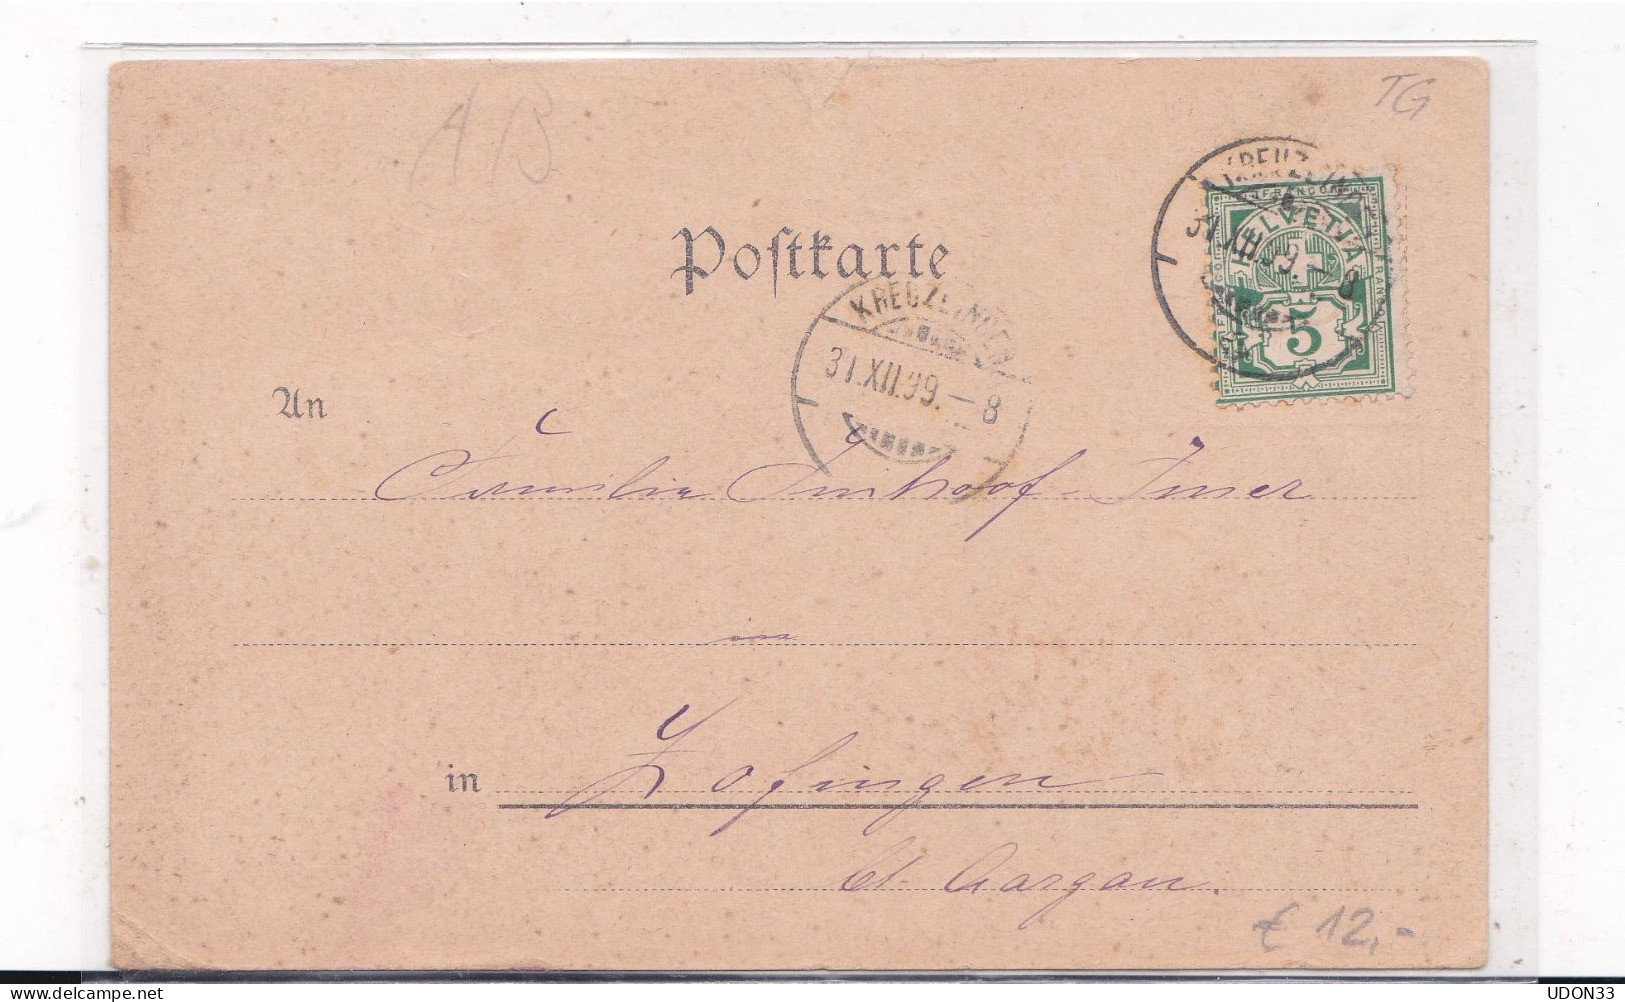 AB
TG
KREUZLINGEN
31.XII.99.-8
FRANCO
HELVETIA
FRANCO
5
Postkarte
KREUZLINGEN
31.XII.99.-8
An
Familie Imhoof-
in
in Zofingen
Ct. Aargau.
€ 12,-
www.delcampe.net
UDON33